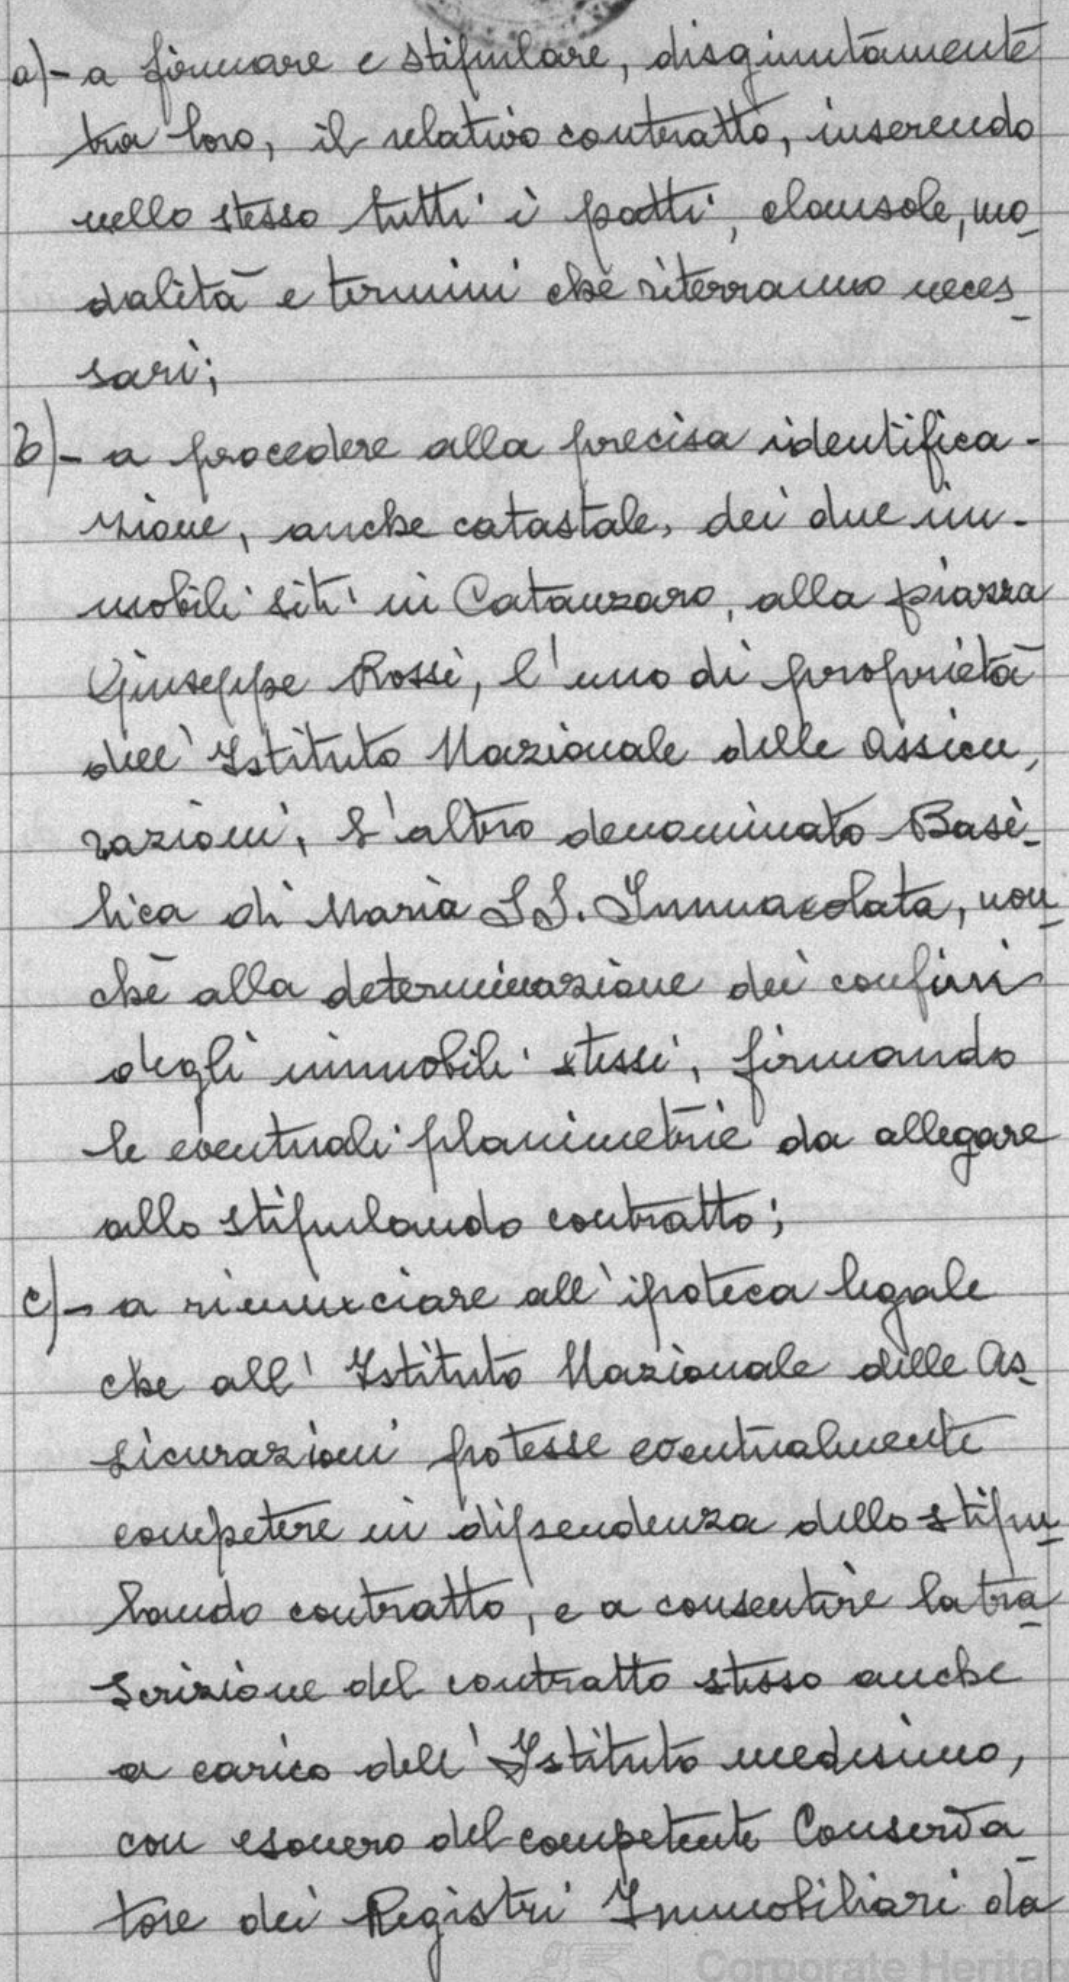 a)- a firmare e stipulare, disgiuntamente
tra loro, il relativo contratto, inserendo
nello stesso tutti i patti, clausole, mo_
dalità e termini che riterranno neces_
sari;
b)- a procedere alla precisa identifica-
zione, anche catastale, dei due im-
mobili siti in Catanzaro, alla piazza
Giuseppe Rossi, l'uno di proprietà
dell'Istituto Nazionale delle Assicu_
razioni, l'altro denominato Basi_
lica di Maria SS. Immacolata, non_
chè alla determinazione dei confini
degli immobili stessi, firmando
le eventuali planimetrie da allegare
allo stipulando contratto;
c)- a rinunciare all'ipoteca legale
che all'Istituto Nazionale delle As_
sicurazioni potesse eventualmente
competere in dipendenza dello stipu_
lando contratto, e a consentire la tra_
scrizione del contratto stesso anche
a carico dell'Istituto medesimo,
con esonero del competente Conserva_
tore dei Registri Immobiliari da
Corporate Heritag